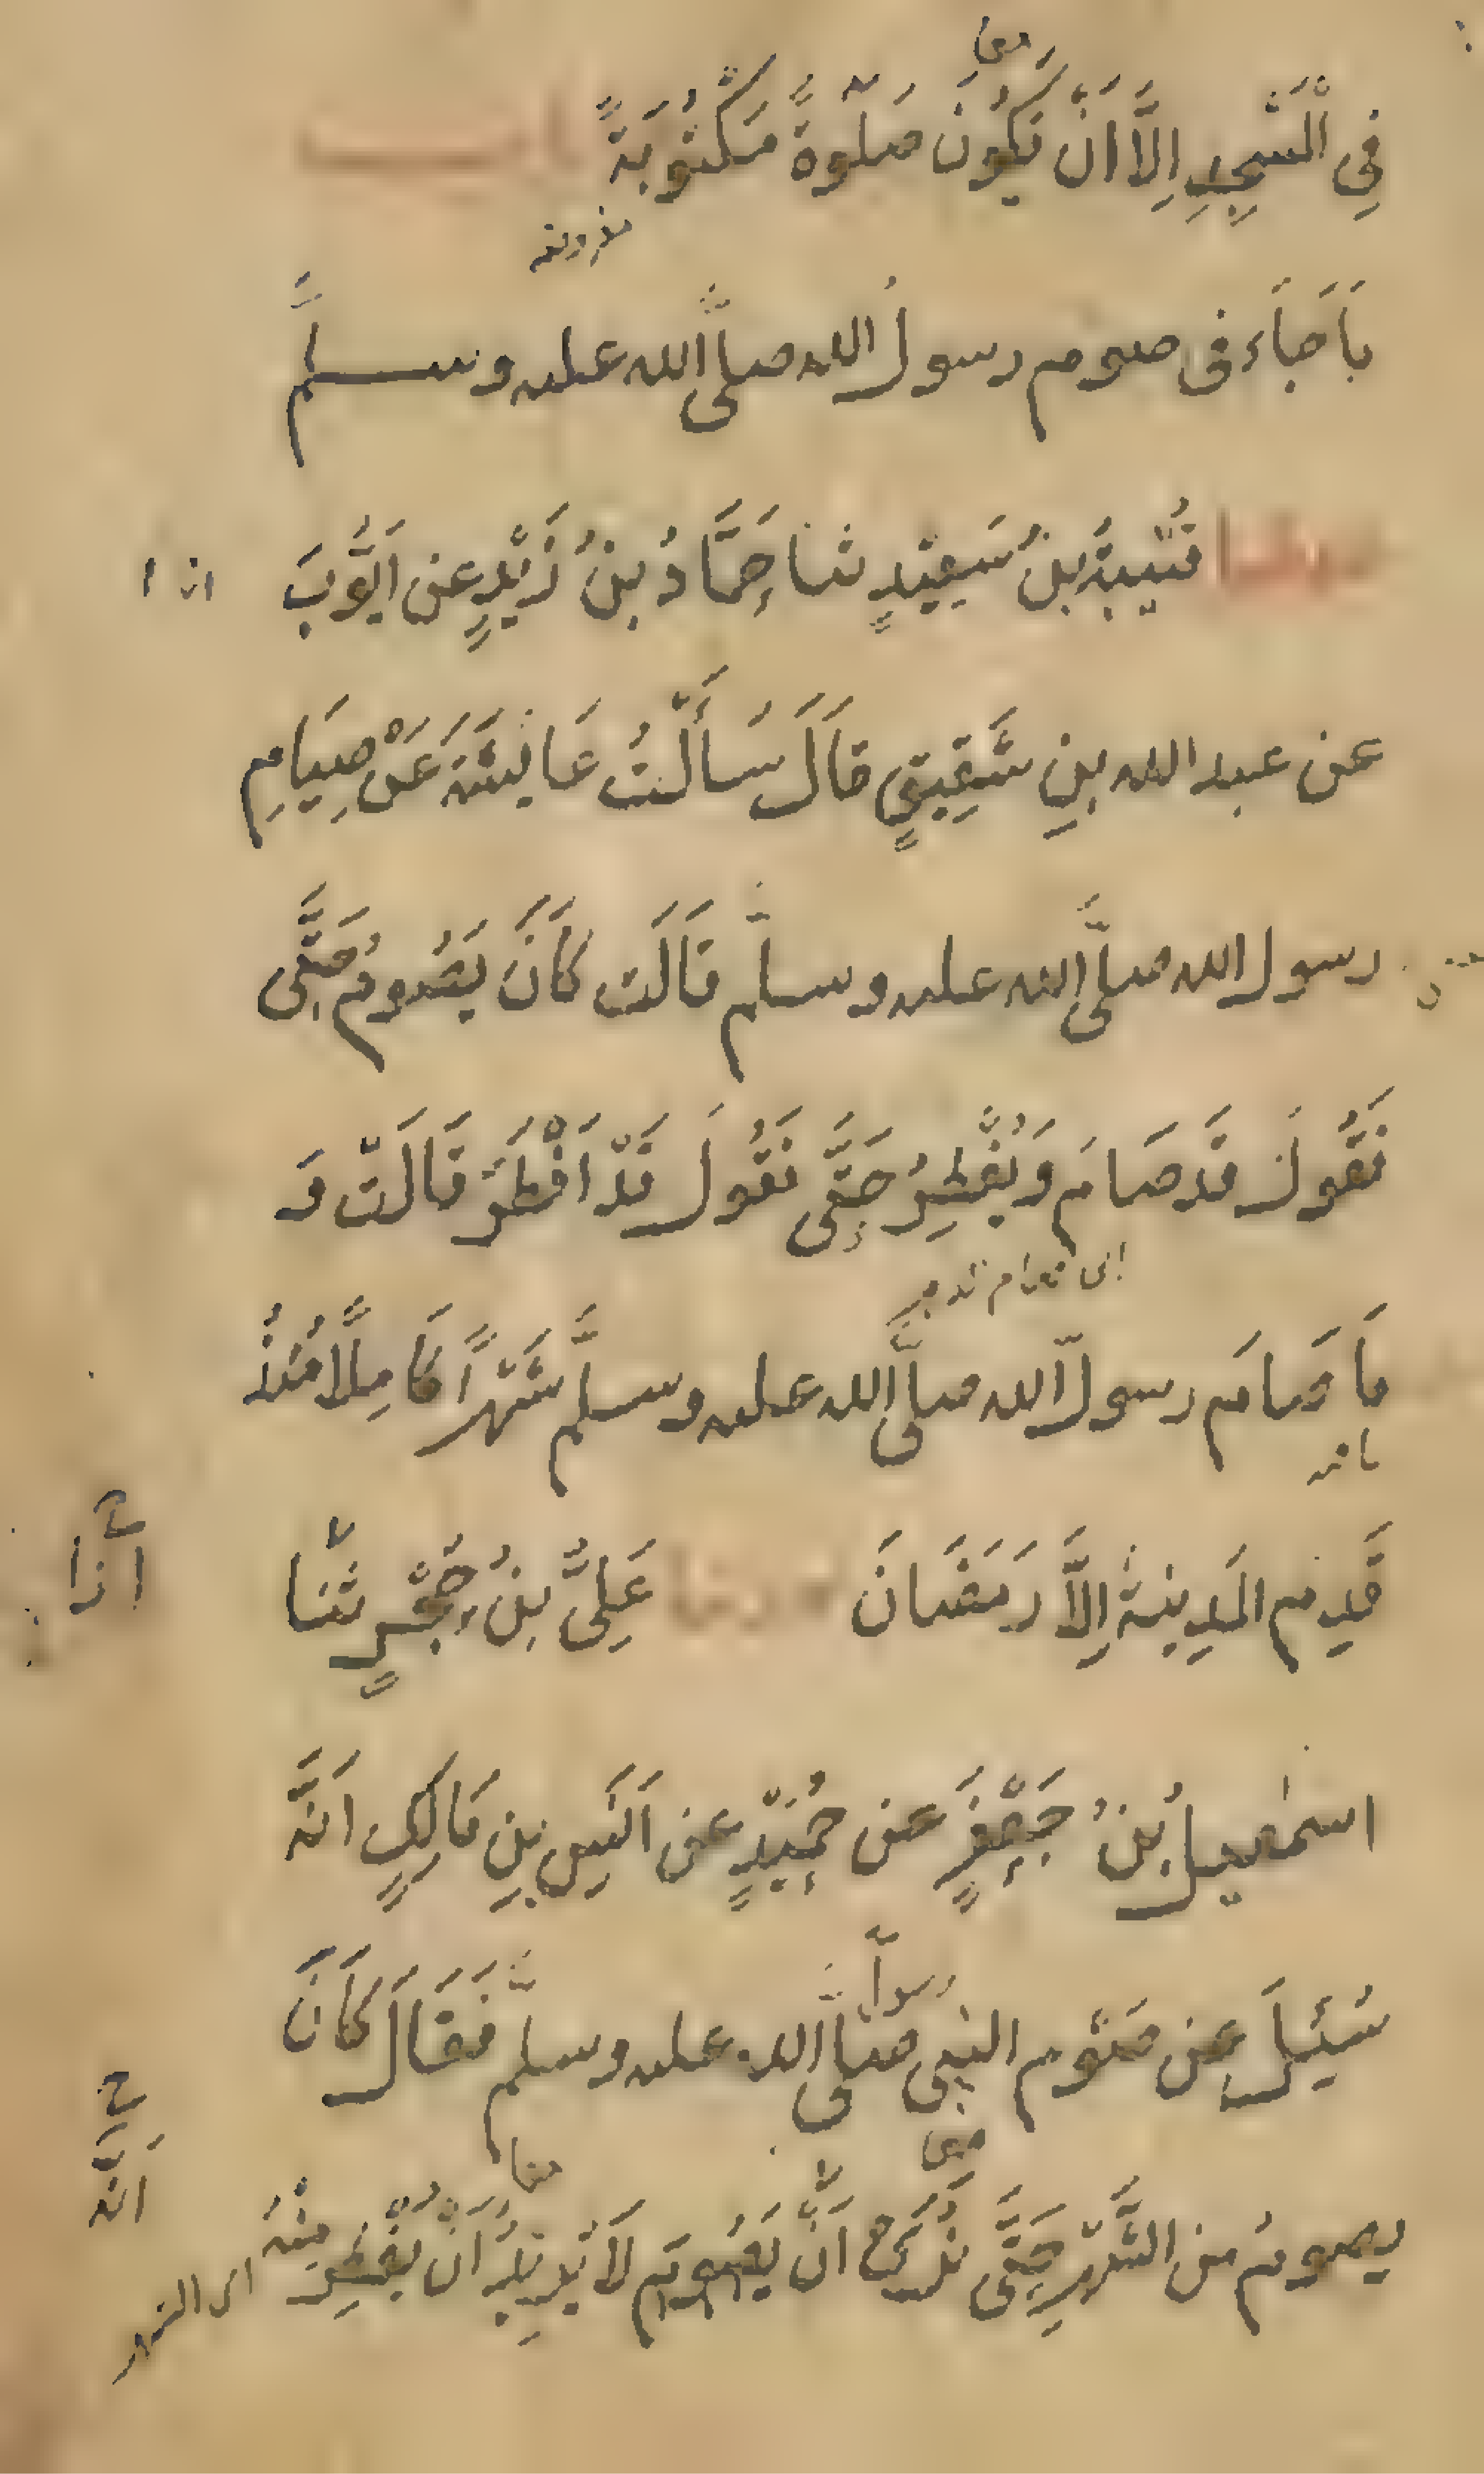 معا
فِي الْمَسْجِدِ اِلَّا اَنْ تَكُوْنَ صَلٰوةً مَكْتُوْبَةً باب
مفروضه
مَا جَاءَ فى صوم رسولُ الله صلَّى الله عليه وسلَّم
حدثنا قُتَيْبَةُ بنُ سَعِيْدٍ ثنا حَمَّادُ بنُ زَيْدٍ عن اَيُّوْبَ
عن عبد الله بنِ شَقِيْقٍ قَالَ سَأَلْتُ عَائِشَةَ عَنْ صِيَامِ
رسول الله صلَّى الله عليه وسلَّم قَالَت كَانَ يَصُومُ حَتَّى
نَقُولَ قَد صَامَ وَيُفْطِرُ حَتَّى نَقُولَ قَدْ اَفْطَرَ قَالَتْ وَ
مَا صَامَ رسول الله صلَّى الله عليه وسلَّم شَهْرًا كَامِلًا مُنْذُ
قَدِمَ المَدِينةَ اِلَّا رَمَضَانَ حدثنا عَلِىُّ بنُ حُجْرٍ ثنا
ح
انا
اسمٰعيلُ بنُ جَعْفَرٍ عن حُمَيْدٍ عن اَنَسِ بنِ مَالِكٍ اَنَّهُ
رسول
سُئِلَ عن صَوْمِ النبى صلَّى الله عليه وسلم فَقَالَ كَانَ
ح
اَنَّه
معا
يصومُ مِن الشَّهْرِ حَتَّى نُرَى اَنْ يَصُومَ لَا يُرِيْدُ اَنْ يُفْطِرَ مِنْهُ
اى الشهر